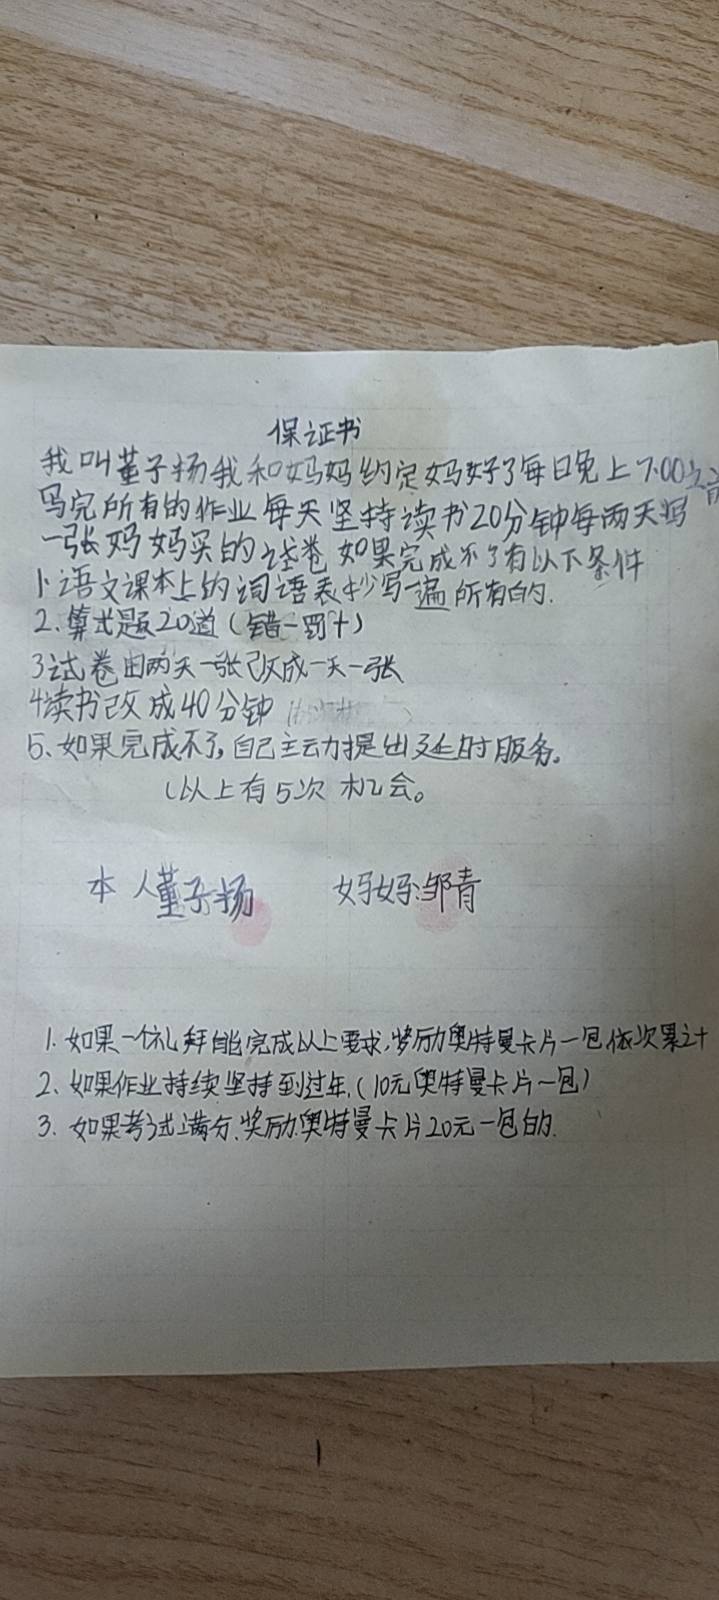 保证书
我叫董子扬我和妈妈约定妈好了每日晚上7:00之前
写完所有的作业每天坚持读书20分钟每两天写
一张妈妈买的试卷如果完成不了有以下条件
1.语文课本上的词语表抄写一遍所有的.
2.算式题20道(错一罚十)
3试卷由两天一张改成一天一张
4读书改成40分钟
5、如果完成不了,自己主动提出延时服务。
以上有5次机会。
本人董子扬 妈妈:邹青
1.如果一个礼拜能完成以上要求,奖励奥特曼卡片一包依次累计
2、如果作业持续坚持到过年、(10元奥特曼卡片一包)
3.如果考试满分、奖励奥特曼卡片20元一包的.